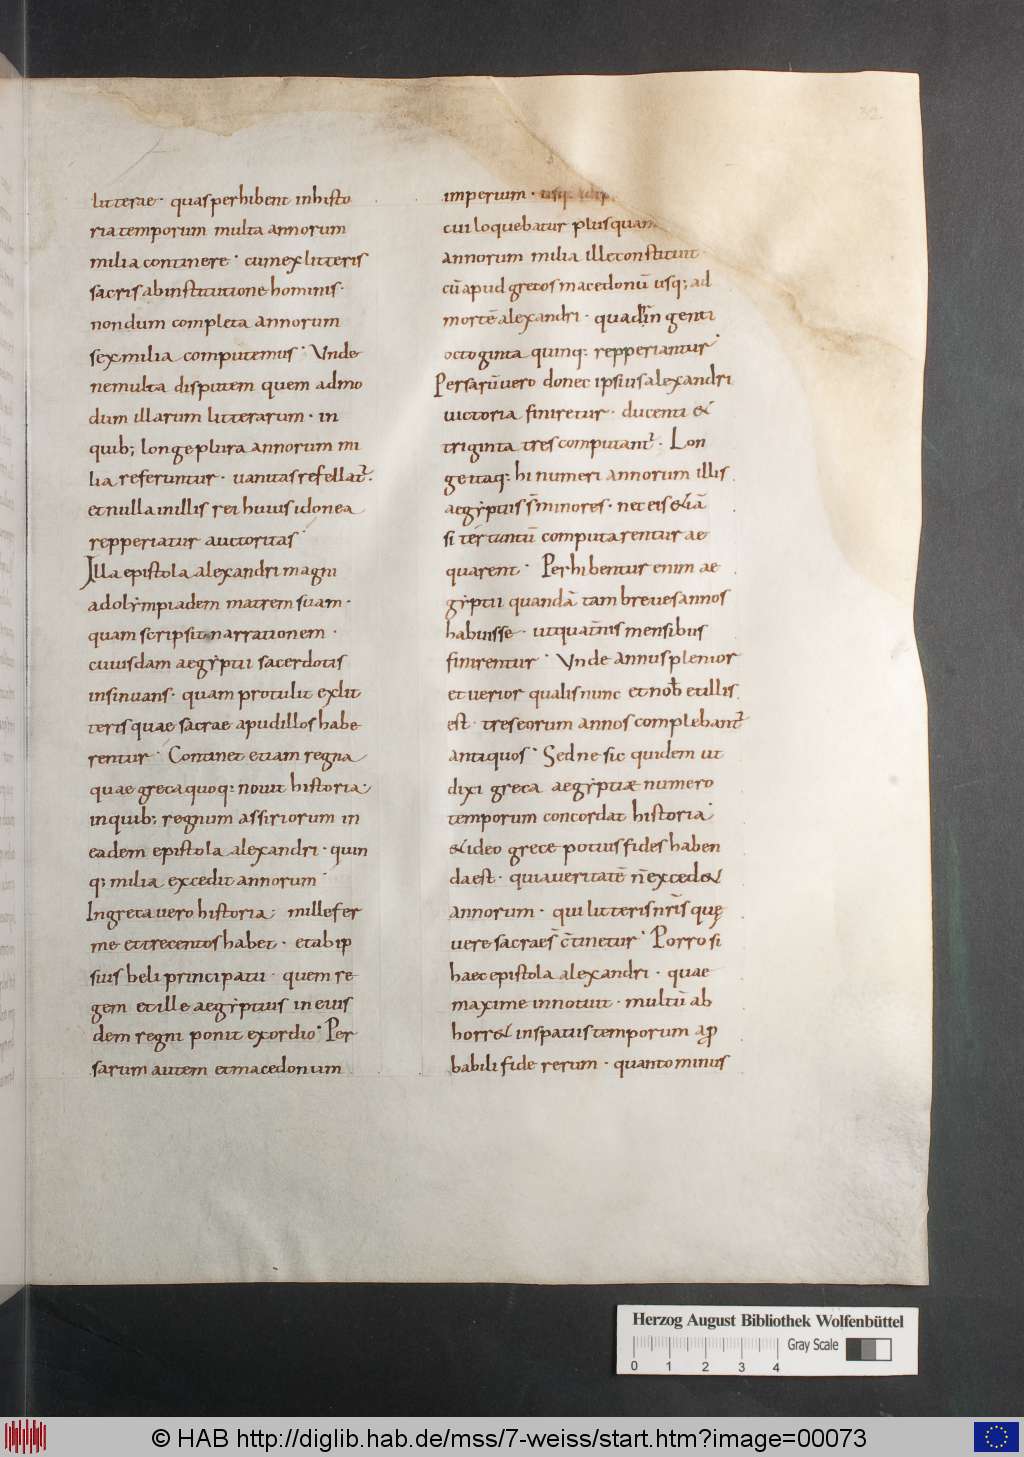 litterae· quas perhibent in histo
ria temporum multa annorum
milia continere· cum ex litteris
sacris ab institutione hominis·
nondum completa annorum
sex milia computemus· Unde
ne multa disputem quem admo
dum illarum litterarum· in
quib; longe plura annorum mi
lia referuntur· vanitas refellat᷑·
et nulla in illis rei huius idonea
repperiatur auctoritas·
Illa epistola alexandri magni
ad olẏmpiadem matrem suam·
quam scripsit narrationem·
cuiusdam aegẏptii sacerdotis
insinuans· quam protulit ex lit
teris quae sacrae apud illos habe
rentur· Continet etiam regna
quae greca quoq: novit historia,
in quib; regnum assiriorum in
eadem epistola alexandri· quin
q; milia excedit annorum·
In greca vero historia, mille fer
me et trecentos habet· et ab ip
sius beli principatu· quem re
gem et ille aegẏptius in eius
dem regni ponit exordio· Per
sarum autem et macedonum
imperium· usq:
cui loquebatur plusquam
annorum milia ille constituit·
cū apud grecos macedonū usq; ad
mortē alexandri· quadrīngenti
octoginta quinq: repperiantur·
Persarū vero donec ipsius alexandri
victoria finiretur· ducenti &
triginta tres computant᷑· Lon
ge itaq: hi numeri annorum illis
aegẏptiis s̄ minores· nec eis &iā
si ter tantū computarentur ae
quarent· Perhibentur enim ae
gẏptii quandā tam breves annos
habuisse· ut quat̄nis mensibus
finirentur· Unde annus plenior
et verior qualis nunc et nob̄ et illis
est· tres eorum annos complebant᷑
antiquos· Sed ne sic quidem ut
dixi greca aegẏptiæ numero
temporum concordat historia·
& ideo grece potius fides haben
da est· quia veritatē n̄ exced&
annorum· qui litteris nr̄is quę
vere sacrae s̄ c̄tinetur· Porro si
haec epistola alexandri· quae
maxime innotuit· multū ab
horr& in spatiis temporum a ꝓ
babili fide rerum· quanto minus
32
Herzog August Bibliothek Wolfenbüttel
Gray Scale
0 1 2 3 4
© HAB http://diglib.hab.de/mss/7-weiss/start.htm?image=00073